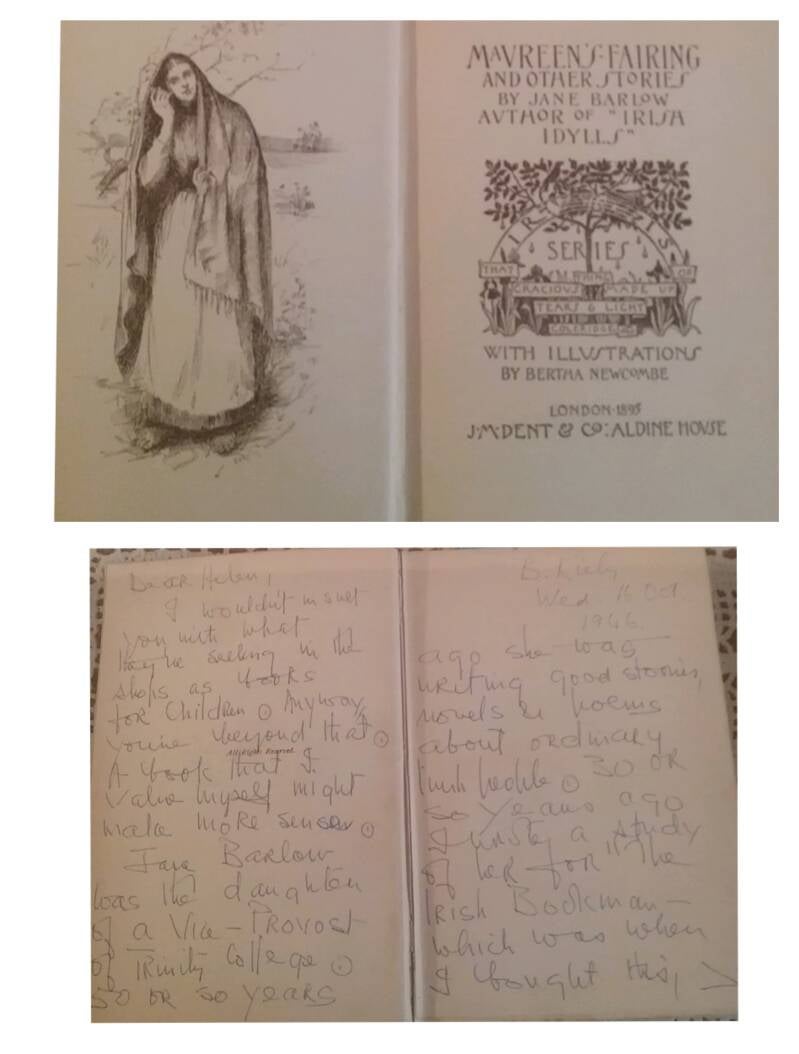 MAVREEN'S·FAIRING
AND OTHER STORIES
BY JANE BARLOW
AVTHOR OF "IRISH
IDYLLS"
IRIS
SERIES
THAT OF
GRACIOUS MADE UP
TEARS & LIGHT
COLERIDGE
WITH ILLVSTRATIONS
BY BERTHA NEWCOMBE
LONDON·1895
J·M·DENT & CO: ALDINE HOVSE
Dear Helen,
I wouldn't insult
you with what
they're selling in the
shops as books
for Children. Anyway,
you're beyond that.
A book that I
value myself might
make more sense.
Jane Barlow
was the daughter
of a Vice-Provost
of Trinity College.
50 or so years
B. Kiely
Wed. 16 Oct.
1946.
ago she was
writing good stories,
novels & poems
about ordinary
Irish people. 30 or
so years ago
I wrote a study
of her for "The
Irish Bookman –
which was when
I bought this,